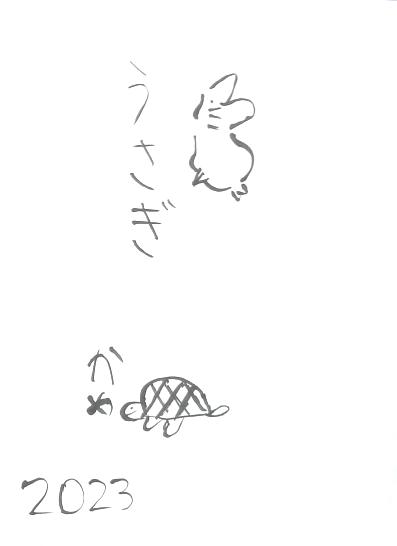 うさぎ
かめ
2023